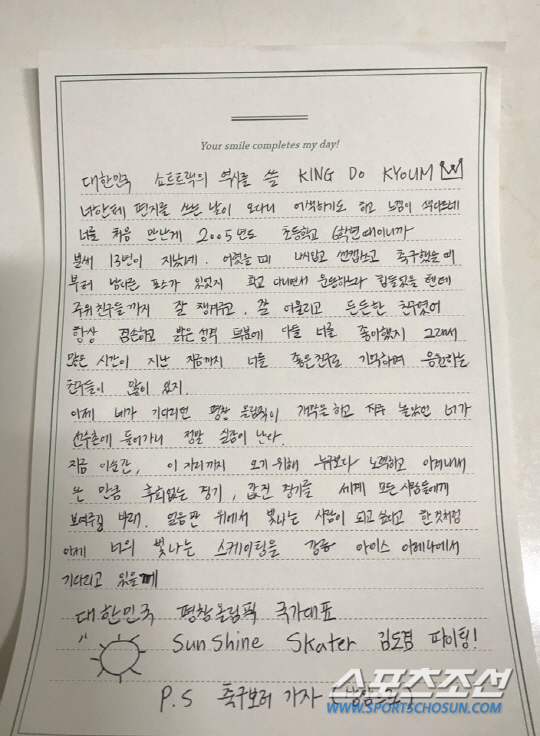 Your smile completes my day!
대한민국 쇼트트랙의 역사를 쓸 KING DO KYOUM
너한테 편지를 쓰는 날이 오다니 어색하기도 하고 느낌이 색다르네
너를 처음 만난게 2005년도 초등학교 6학년때이니까
벌써 13년이 지났네. 어렸을 때 축구했을 때
부터 남다른 포스가 있었지 학교 다니면서 운동하느라 힘들었을 텐데
주위 친구들까지 잘 챙겨주고, 잘 어울리고 든든한 친구였어
항상 겸손하고 밝은 성격 덕분에 다들 너를 좋아했지 그래서
많은 시간이 지난 지금까지 너를 좋은 친구로 기억하며 응원하는
친구들이 많이 있지.
이제 네가 기다리던 평창 올림픽이 개막을 하고 자주 놀았던 너가
선수촌에 들어가니 정말 실감이 난다.
지금 이순간, 이 자리까지 오기 위해 누구보다 노력하고 이겨내서
온 만큼 후회없는 경기, 값진 경기를 세계 모든 사람들에게
보여주길 바래. 얼음판 위에서 빛나는 사람이 되고 싶다고 한 것처럼
이제 너의 빛나는 스케이팅을 강릉 아이스 아레나에서
기다리고 있을게
대한민국 평창올림픽 국가대표
Sun Shine Skater 김도겸 파이팅!
P.S 축구보러 가자
스포츠조선
WWW.SPORTSCHOSUN.COM